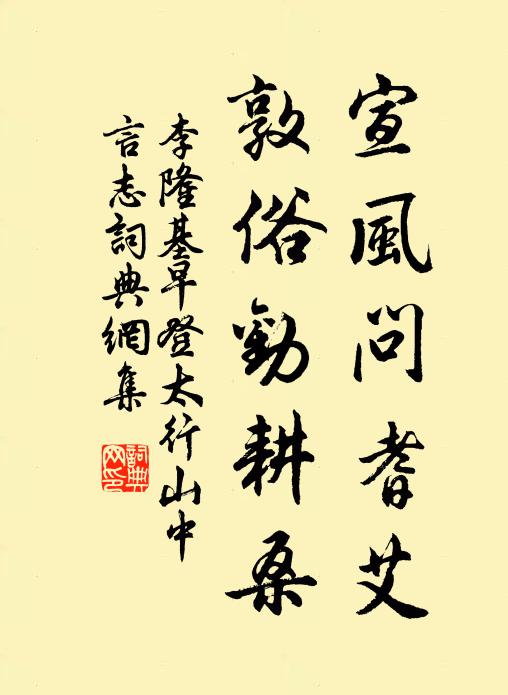 宣風問耆艾
敦俗勸耕桑
李隆基早登太行山中
言志詞典網集
詞典網印